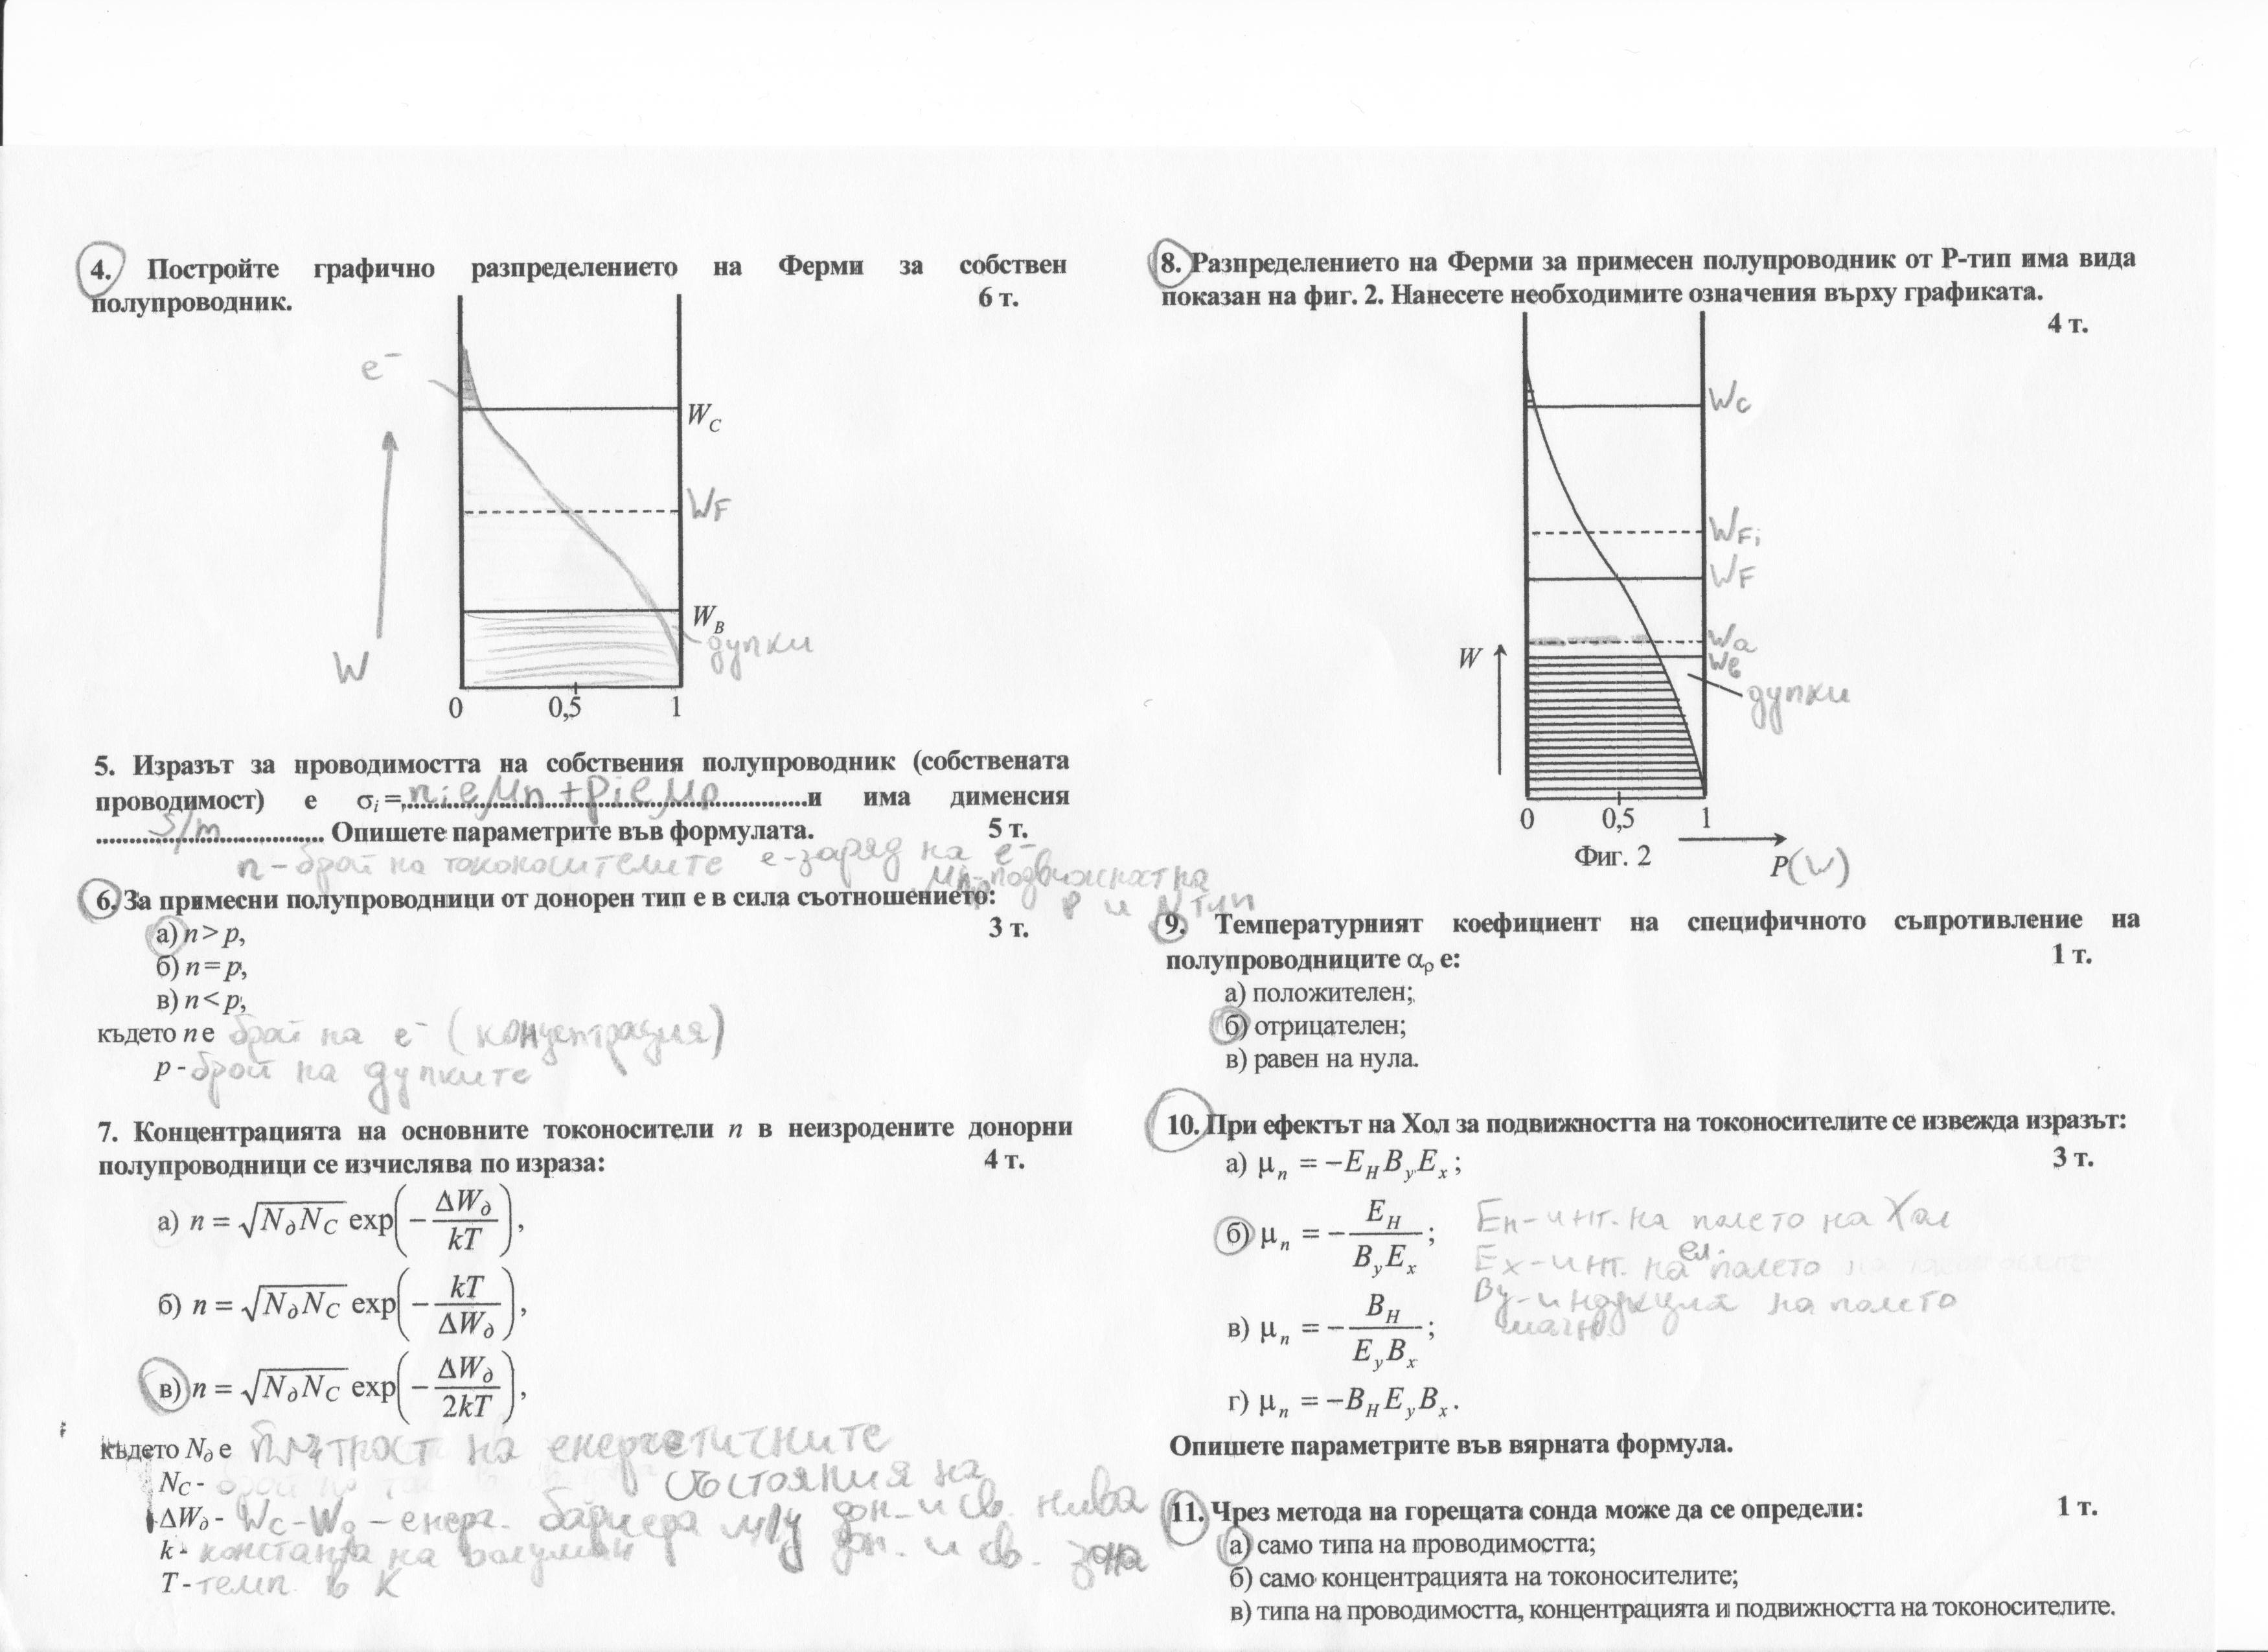 4. Постройте графично разпределението на Ферми за собствен
полупроводник. 6 т.
e⁻
W_C
W_F
W_B
дупки
W
0 0,5 1
5. Изразът за проводимостта на собствения полупроводник (собствената
проводимост) е σᵢ=nᵢeμn+pᵢeμp и има дименсия
S/m Опишете параметрите във формулата. 5 т.
n - брой на токоносителите e - заряд на e⁻
μn,p - подвижност на
P и N тип
6. За примесни полупроводници от донорен тип е в сила съотношението:
а) n > p, 3 т.
б) n = p,
в) n < p,
където n е брой на e⁻ (концентрация)
p - брой на дупките
7. Концентрацията на основните токоносители n в неизродените донорни
полупроводници се изчислява по израза: 4 т.
а) n = √(N_∂N_C) exp(−ΔW_∂/kT),
б) n = √(N_∂N_C) exp(−kT/ΔW_∂),
в) n = √(N_∂N_C) exp(−ΔW_∂/2kT),
където N_∂ е плътност на енергетичните
N_C - състояния на
дон. и св. нива
ΔW_∂ - Wc-W∂ - енерг. бариера м/у дон. и св. зона
k - константа на Болцман
T - темп. в K
8. Разпределението на Ферми за примесен полупроводник от P-тип има вида
показан на фиг. 2. Нанесете необходимите означения върху графиката.
4 т.
Wc
WFi
WF
Wa
Wв
W
дупки
0 0,5 1
Фиг. 2
P(W)
9. Температурният коефициент на специфичното съпротивление на
полупроводниците αρ е: 1 т.
а) положителен;
б) отрицателен;
в) равен на нула.
10. При ефектът на Хол за подвижността на токоносителите се извежда изразът:
а) μₙ = −E_H B_y E_x; 3 т.
б) μₙ = −E_H/(B_y E_x);
Eн - инт. на полето на Хол
Ex - инт. на ел. полето
By - индукция на полето
магн.
в) μₙ = −B_H/(E_y B_x);
г) μₙ = −B_H E_y B_x.
Опишете параметрите във вярната формула.
11. Чрез метода на горещата сонда може да се определи: 1 т.
а) само типа на проводимостта;
б) само концентрацията на токоносителите;
в) типа на проводимостта, концентрацията и подвижността на токоносителите.